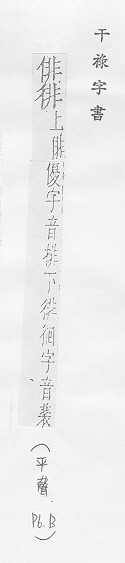 干祿字書
俳徘上俳優字音排下徘徊字音裴
(平聲 P6.B)